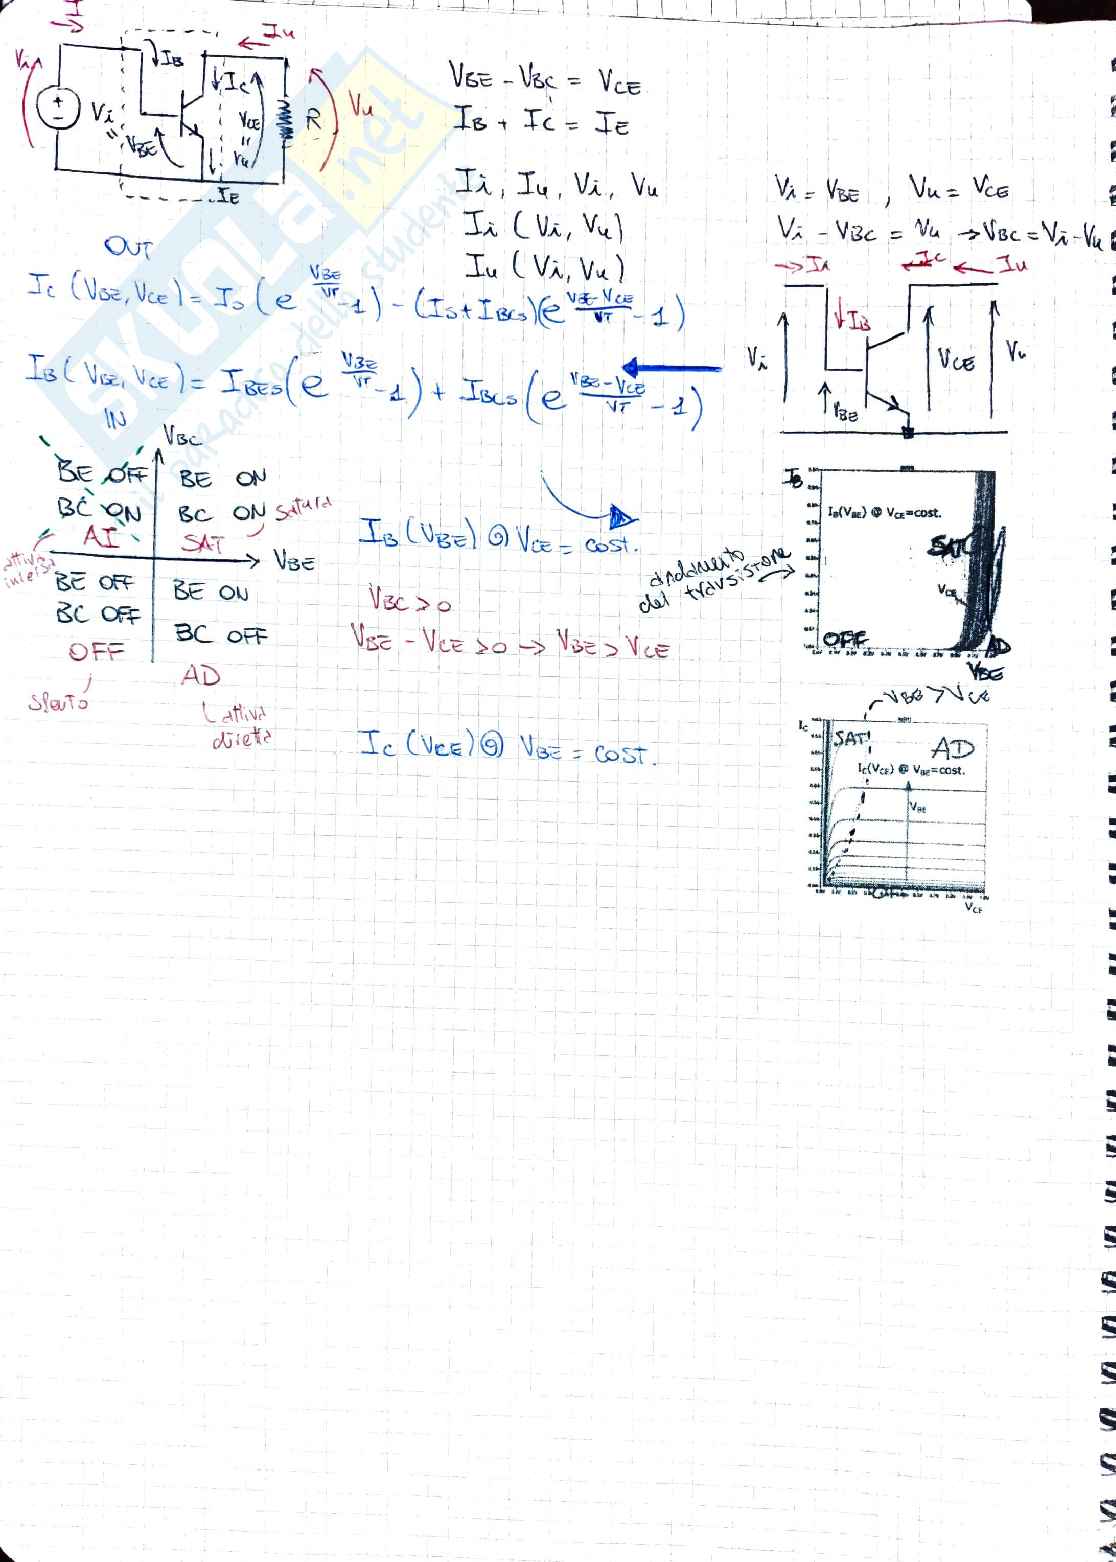 Ii
Iu
Vi
IB
IC
Vi
"
VBE
VCE
=
Vu
R
Vu
IE
VBE - VBC = VCE
IB + IC = IE
Ii, Iu, Vi, Vu
Ii (Vi, Vu)
Iu (Vi, Vu)
Vi = VBE , Vu = VCE
Vi - VBC = Vu → VBC = Vi - Vu
→ Ii
IC
← Iu
IB
Vi
VBE
VCE
Vu
OUT
IC (VBE, VCE) = IS (e^(VBE/VT) - 1) - (IS + IBCS)(e^((VBE-VCE)/VT) - 1)
IB (VBE, VCE) = IBES (e^(VBE/VT) - 1) + IBCS (e^((VBE-VCE)/VT) - 1)
IN
VBC
BE OFF
BC ON
AI
attiva inversa
BE ON
BC ON
SAT
satura
VBE
BE OFF
BC OFF
OFF
spento
BE ON
BC OFF
AD
attiva
diretta
IB (VBE) @ VCE = cost.
VBC > 0
VBE - VCE > 0 → VBE > VCE
IC (VCE) @ VBE = cost.
andamento
del transistore
IB
IB(VBE) @ VCE=cost.
SAT
VCE
OFF
AD
VBE
VBE > VCE
IC
SAT
AD
IC(VCE) @ VBE=cost.
VBE
OFF
VCE
SKUOLA.net
il paradiso dello studente